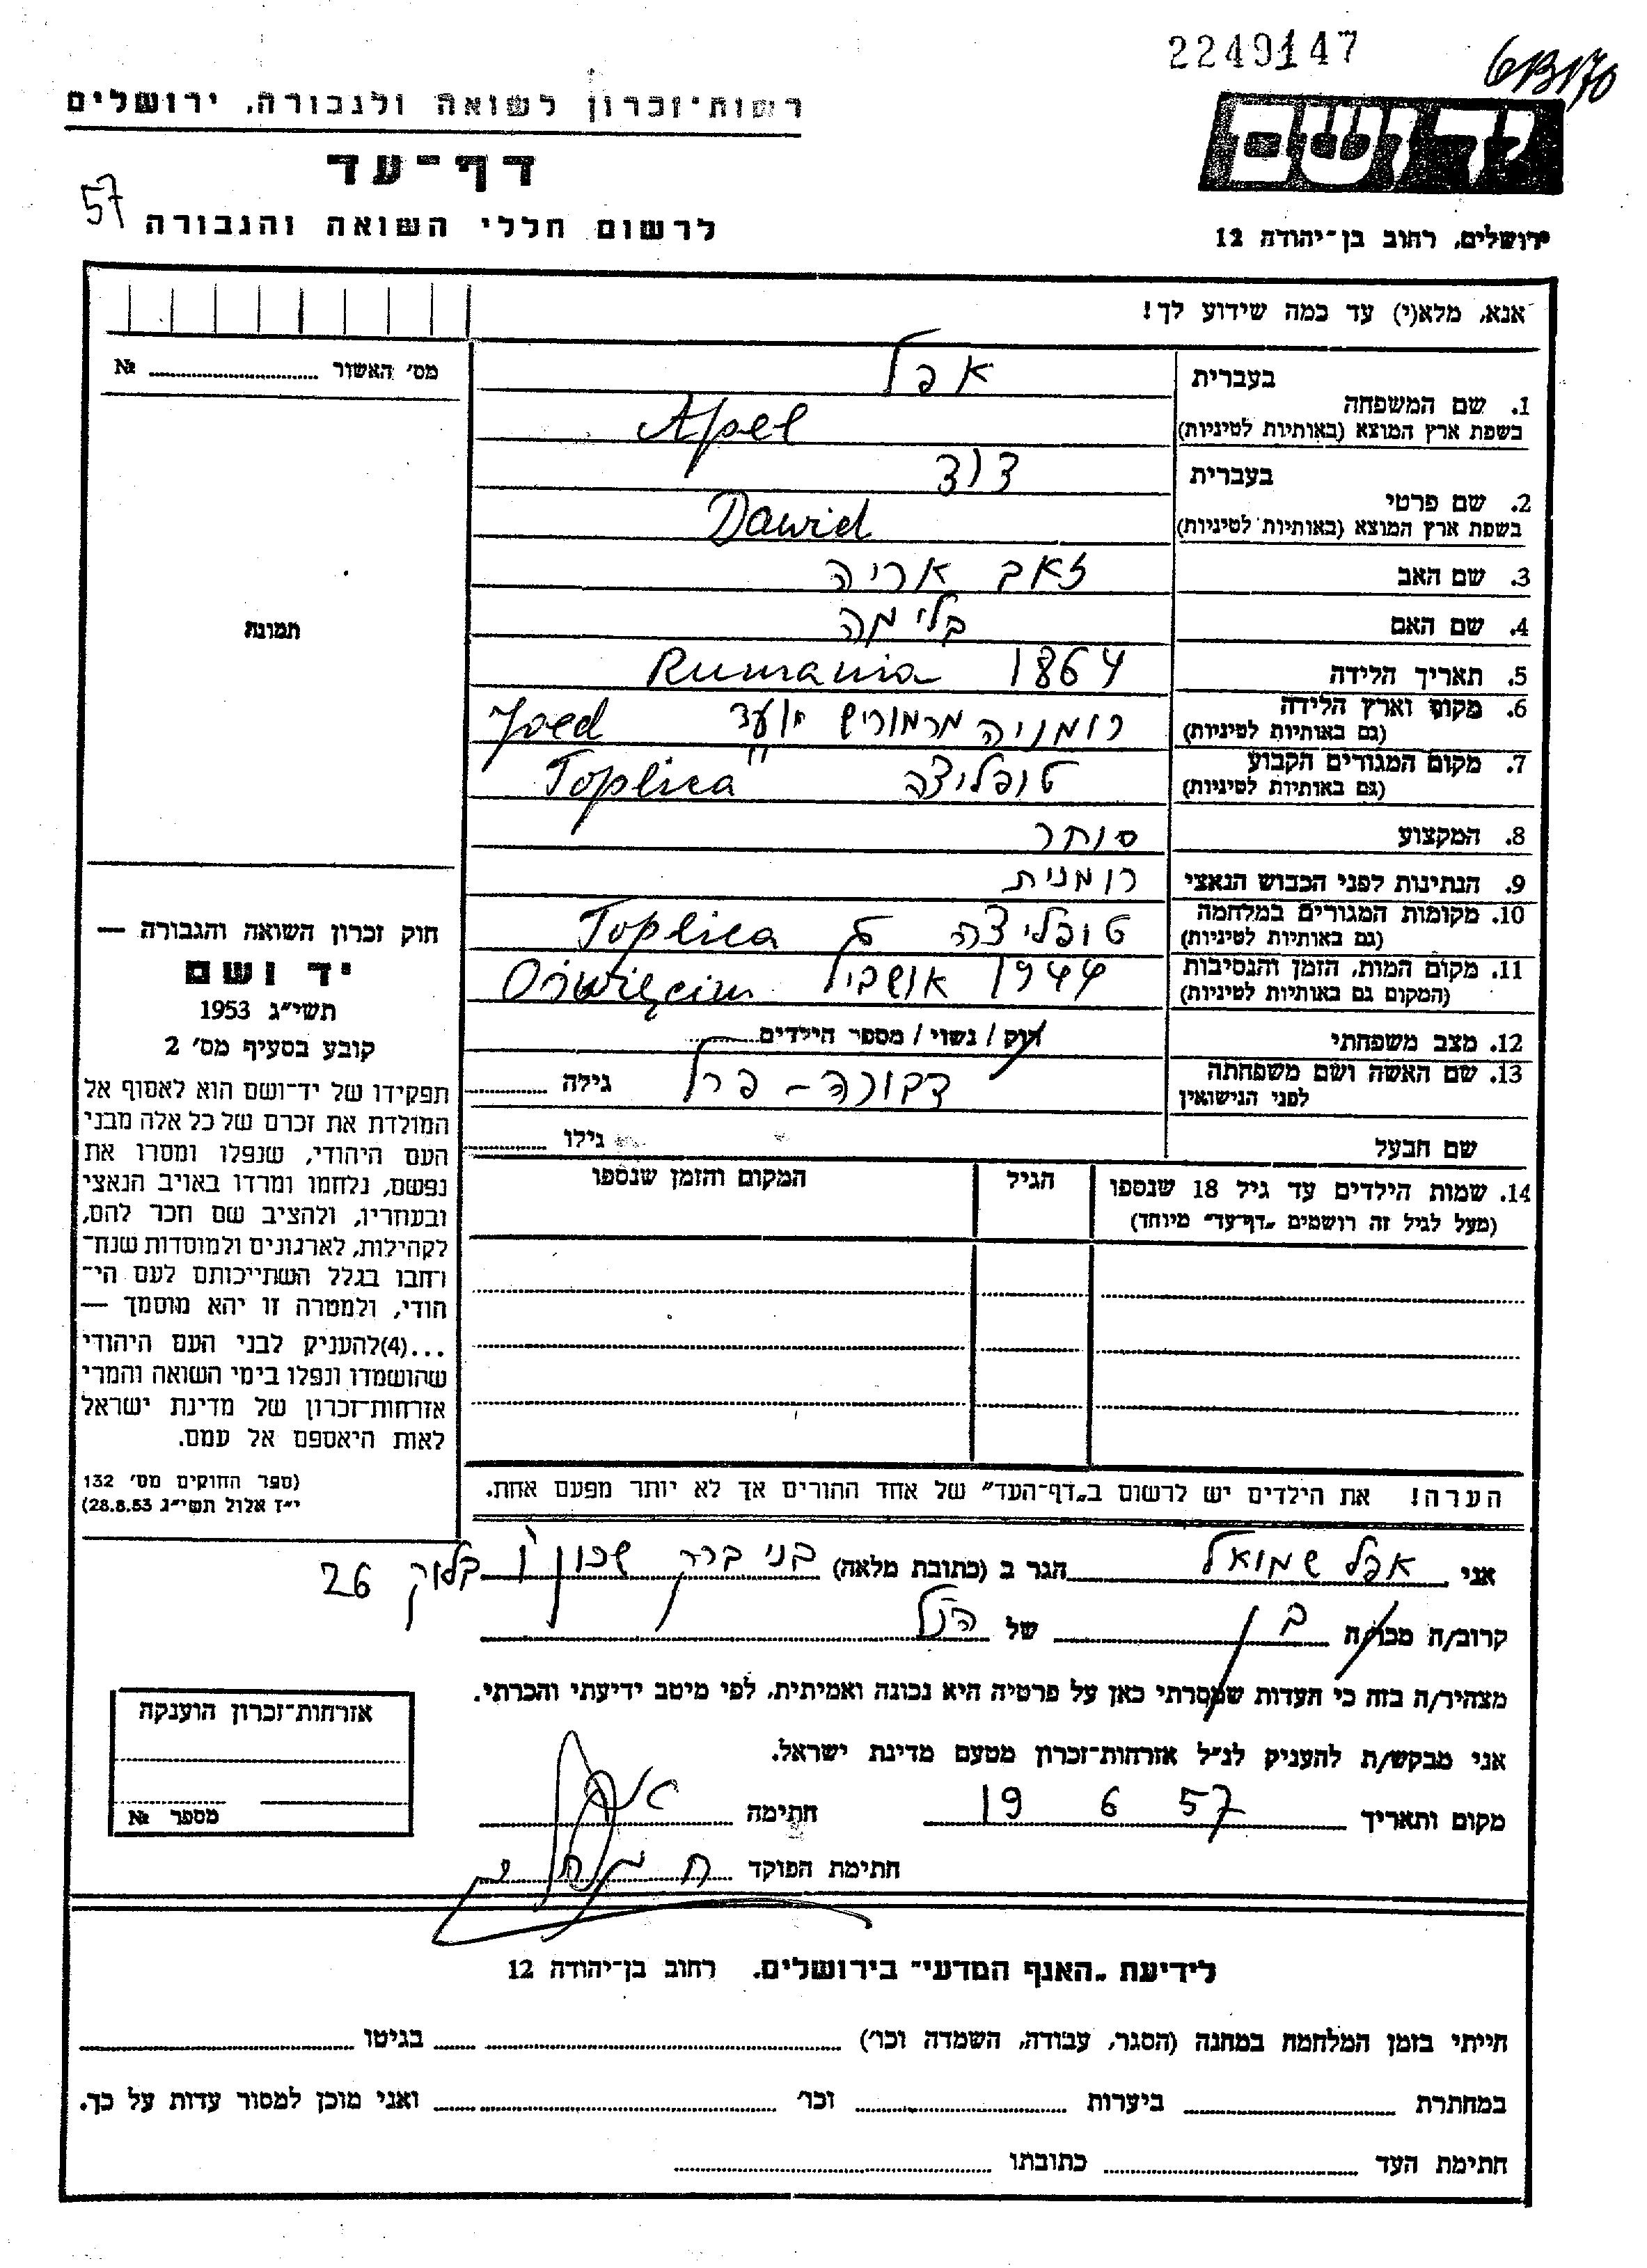 2249147
6B170
רשות־זכרון לשואה ולגבורה, ירושלים
יד ושם
דף־עד
57
לרשום חללי השואה והגבורה
ירושלים, רחוב בן־יהודה 12
אנא, מלא(י) עד כמה שידוע לך!
מס׳ האשור № 
1. שם המשפחה בעברית אפל
בשפת ארץ המוצא (באותיות לטיניות) Apel
2. שם פרטי בעברית דוד
בשפת ארץ המוצא (באותיות לטיניות) Dawid
3. שם האב זאב אריה
4. שם האם בלימה
תמונה
5. תאריך הלידה 1864 Rumania
6. מקום וארץ הלידה (גם באותיות לטיניות) רומניה מרמוריש יועד Joed
7. מקום המגורים הקבוע (גם באותיות לטיניות) טופליצה Toplica
8. המקצוע סוחר
9. הנתינות לפני הכבוש הנאצי רומנית
10. מקומות המגורים במלחמה (גם באותיות לטיניות) טופליצה Toplica
11. מקום המות, הזמן והנסיבות (המקום גם באותיות לטיניות) 1944 Oświęcim
12. מצב משפחתי רוק / נשוי / מספר הילדים
13. שם האשה ושם משפחתה לפני הנישואין דבורה – פרל גילה
שם הבעל גילו
14. שמות הילדים עד גיל 18 שנספו הגיל המקום והזמן שנספו
(מעל לגיל זה רושמים „דף־עד" מיוחד)
חוק זכרון השואה והגבורה —
יד ושם
תשי"ג 1953
קובע בסעיף מס׳ 2
תפקידו של יד־ושם הוא לאסוף אל
המולדת את זכרם של כל אלה מבני
העם היהודי, שנפלו ומסרו את
נפשם, נלחמו ומרדו באויב הנאצי
ובעוזריו, ולהציב שם וזכר להם,
לקהילות, לארגונים ולמוסדות שנח־
רחבו בגלל השתייכותם לעם הי־
הודי, ולמטרה זו יהא מוסמך —
...(4)להעניק לבני העם היהודי
שהושמדו ונפלו בימי השואה והמרי
אזרחות־זכרון של מדינת ישראל
לאות היאספם אל עמם.
(ספר החוקים מס׳ 132
י"ז אלול תשי"ג 28.8.53)
הערה! את הילדים יש לרשום ב„דף־העד" של אחד ההורים אך לא יותר מפעם אחת.
אני אפל שמואל הגר ב (כתובת מלאה) בני ברק שכון ו׳ בלוק 26
קרוב/ה מכר/ה בן של הנ"ל
מצהיר/ה בזה כי העדות שמסרתי כאן על פרטיה היא נכונה ואמיתית, לפי מיטב ידיעתי והכרתי.
אני מבקש/ת להעניק לנ"ל אזרחות־זכרון מטעם מדינת ישראל.
אזרחות־זכרון הוענקה
מספר №
מקום ותאריך 19 6 57 חתימה
חתימת הפוקד
לידיעת „האגף המדעי" בירושלים. רחוב בן־יהודה 12
הייתי בזמן המלחמה במחנה (הסגר, עבודה, השמדה וכו׳) בגיטו
במחתרת ביערות וכו׳ ואני מוכן למסור עדות על כך.
חתימת העד כתובתו